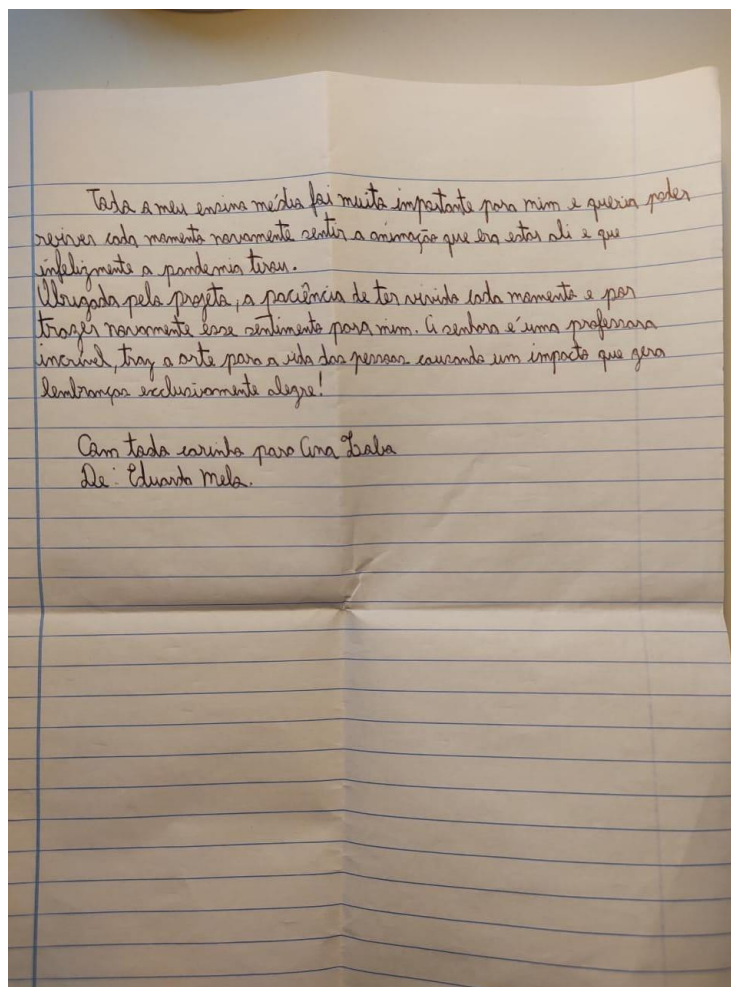 Todo o meu ensino médio foi muito importante para mim e queria poder
reviver cada momento novamente sentir a animação que era estar ali e que
infelizmente a pandemia tirou.
Obrigado pelo projeto, a paciência de ter vivido cada momento e por
trazer novamente esse sentimento para mim. A senhora é uma professora
incrível, traz a arte para a vida das pessoas causando um impacto que gera
lembranças exclusivamente alegre!
Com todo carinho para Ana Lobo
De: Eduardo Melo.